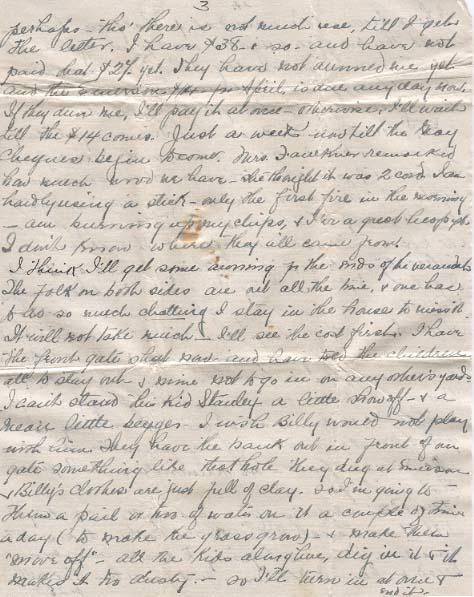 3
perhaps - tho' there is not much use, till I get
the letter. I have $38 & so - and have not
paid that $27 yet. They have not dunned me yet
and the Emerson for April, is due any day now.
If they dun me, I'll pay it at once - otherwise, I'll wait
till the $14 comes. Just a week now till the May
Cheques begin to come. Mrs. Faulkner remarked
how much wood we have - she thought it was 2 cord. I am
hardly using a stick - only the first fire in the morning
- am burning up my chips, & I've a great heap yet.
I don't know where they all came from.
I think I'll get some awning for the ends of the verandah
The folk on both sides are out all the time, & one has
to do so much chatting I stay in the house to miss it.
It will not take much - I'll see the cost first. I have
the front gate shut now and have told the children
all to stay out - & mine not to go in on any other's yards
I can't stand the kid Stanley a little show off - & a
mean little . I wish Billy would not play
with him. They have the bank out in front of our
gate something like that hole they dug at Emerson
& Billy's clothes are just full of clay. So I'm going to
throw a pail or two of water on it a couple of times
a day (to make the grass grow) - & make them
"move off" - all the kids dig in it & it
makes it too dusty. - so I'll turn in at once &
end it.